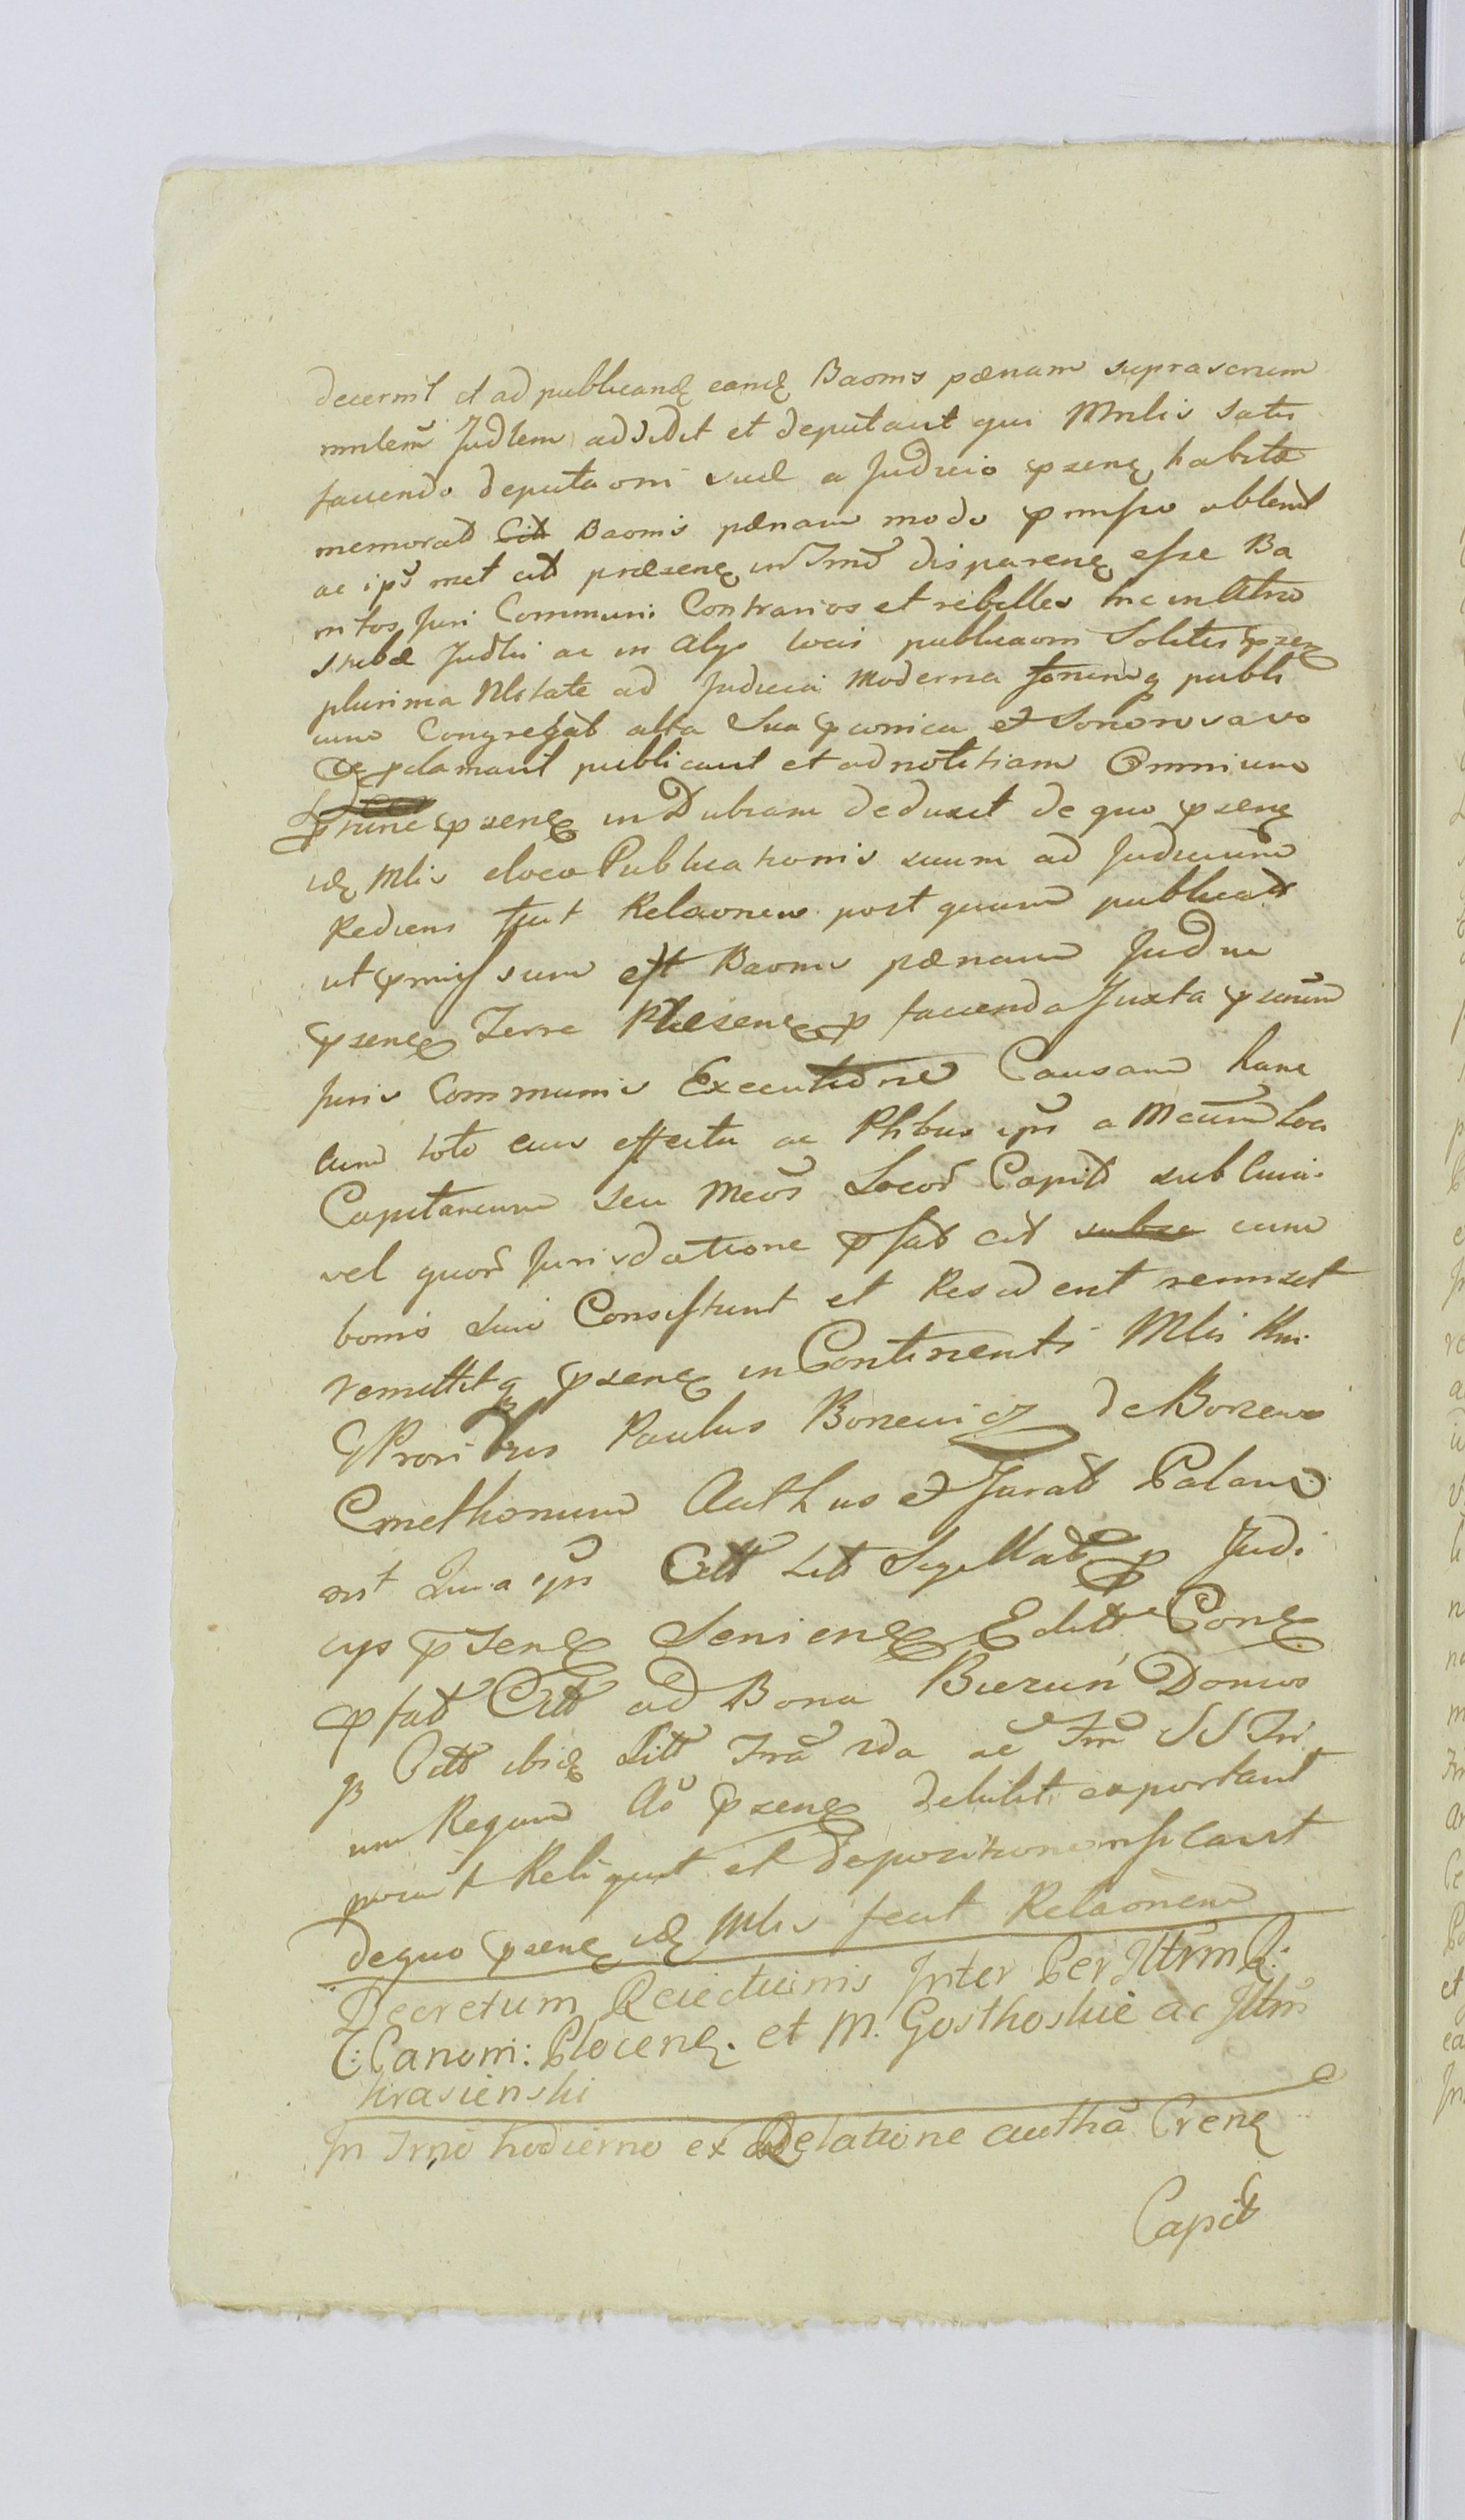 decernit et ad publicand eand Baonis pœnam suprascrium
mnlem Judlem addidit et deputavit qui Mnlis satis
faciendo deputaoni suæ a Judicio psene habitæ
memorat Citt Baonis pœnam modo pmisso obtent
ac ips met citt præsene in Trno disparene esse Ba
nitos Juri Communi Contrarios et rebelles hic in Atrio
stubæ Judlis ac in alys locis publicaom Solitis psen
plurima Nbstate ad Judicia Moderna forumq publi
cum Congregat alta Sua pconica et Sonorosa vo
ce pclamavit publicavit et ad notitiam Omnium
hinc psene in Dubiam deduxit de quo psene
id Mlis eloco Publicationis suum ad Judicium
Rediens fecit Relaonem post quam publicatt
ut pmissum est Baonis pœnam Judm
psene Terre Plesene p facienda Juxta pscrim
Juris Communis Executione Causam hanc
cum toto eius effectu ac Ptibus ips a Mcum loci
Capitaneum seu Mcos Locor Capitt sub cuius
vel quor Jurisdatione pfat citt subse cum
bonis suis Consistunt et Resident remisit
remittitq psene in Continenti Mlis Kni
GPro Paulus Boneuicz de Bonewo
Cmethonum Authus et Jurat Palam
ips Citt Litt Sigillat p Judi
cys psene Seniene Editt Cone
pfat Citt ad Bona Biezuń Domus
q Citt ibid Litt Tra 2da ac Trm SS Tri
um Regum Ao psene debite exportavit
posuit Reliquit et depositione nsicavit
de quo psene id Mlis fecit Relaonem
Decretum Reiectionis Inter Per Illtrm R:
C: Canoni: Plocene. et M. Gosthoskie ac Illtm
Krasienski
In Trno hodierno ex Relatione autha Crene
Capitt